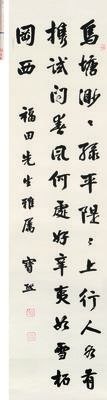 馬塘渺渺綠平隄隄上行人各有
攜試問春風何處好辛夷如雪柘
岡西
福田先生雅属
寶熙